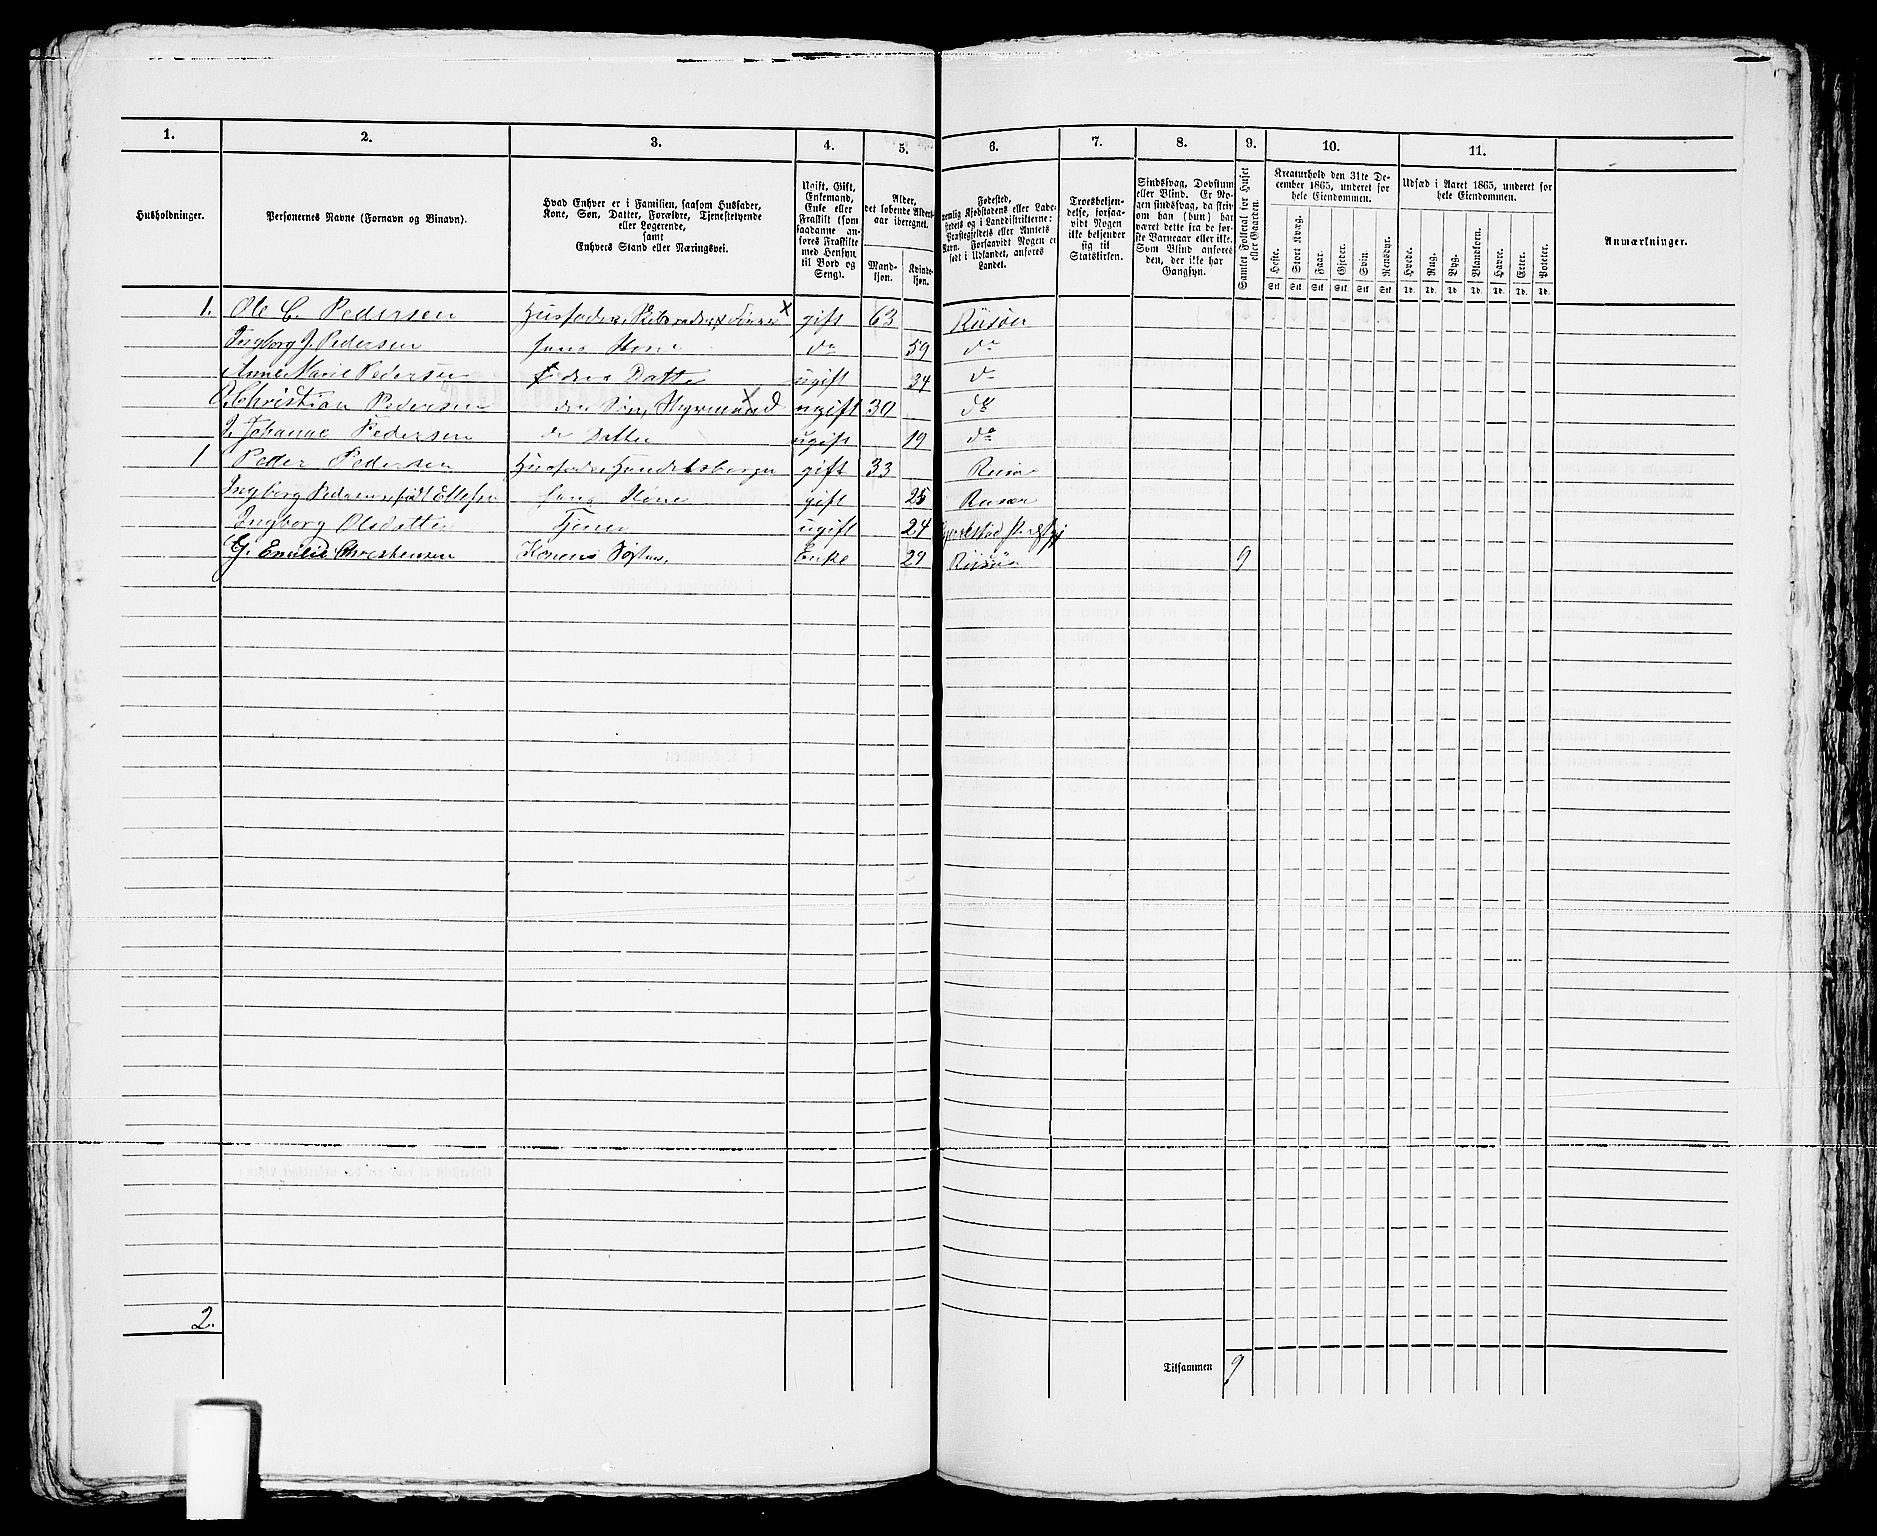 1. 2. 3. 4. 5. 6. 7. 8. 9. 10. 11.
Husholdninger.
Personernes Navne (Fornavn og Binavn).
Hvad Enhver er i Familien, saasom Husfader,
Kone, Søn, Datter, Forældre, Tjenestetyende
eller Logerende,
samt
Enhvers Stand eller Næringsvei.
Ugift, Gift,
Enkemand,
Enke eller
Fraskilt (som
saadanne an-
føres Fraskilte
med Hensyn
til Bord og
Seng).
Alder,
det løbende Alders-
aar iberegnet.
Mand-
kjøn.
Kvinde-
kjøn.
Fødested,
nemlig Kjøbstadens eller Lade-
stedets og i Landdistrikterne:
Præstegjeldets eller Amtets
Navn. Forsaavidt Nogen er
født i Udlandet, anføres
Landet.
Troesbekjen-
delse, forsaa-
vidt Nogen
ikke bekjender
sig til
Statskirken.
Sindssvag, Døvstum
eller Blind. Er No-
gen sindssvag, da skri-
ves om han (hun) har
været dette fra de før-
ste Barneaar eller ikke.
Som Blind anføres
den, der ikke har
Gangsyn.
Samlet Folketal for Huset
eller Gaarden.
Kreaturhold den 31te De-
cember 1865, underet for
hele Eiendommen.
Heste. Stort Kvæg. Faar. Gjeder. Svin. Rensdyr.
Stk Stk Stk Stk Stk Stk
Udsæd i Aaret 1865, underet for
hele Eiendommen.
Hvede. Rug. Byg. Blandkorn. Havre. Erter. Poteter.
Td. Td. Td. Td. Td. Td. Td.
Anmærkninger.
1. Ole C. Pedersen Husfader, gift 63 Riisøer
Ingborg J. Pedersen hans Kone do 59 do
Anne Marie Pedersen deres Datter ugift 34 do
O. Christian Pedersen der Søn, Styrmand ugift 30 do
Johanne Pedersen do Datter ugift 19 do
1 Peder Pedersen Husfader Handelsborger gift 33 Risør
Ingborg født Ellefsen hans Kone gift 25 Risøer
Ingborg Olsdatter Tjener ugift 24 Gjerrestad
Emilie Christensen Konens Søster, Enke 29 Riisøer 9
2.
Tilsammen 9